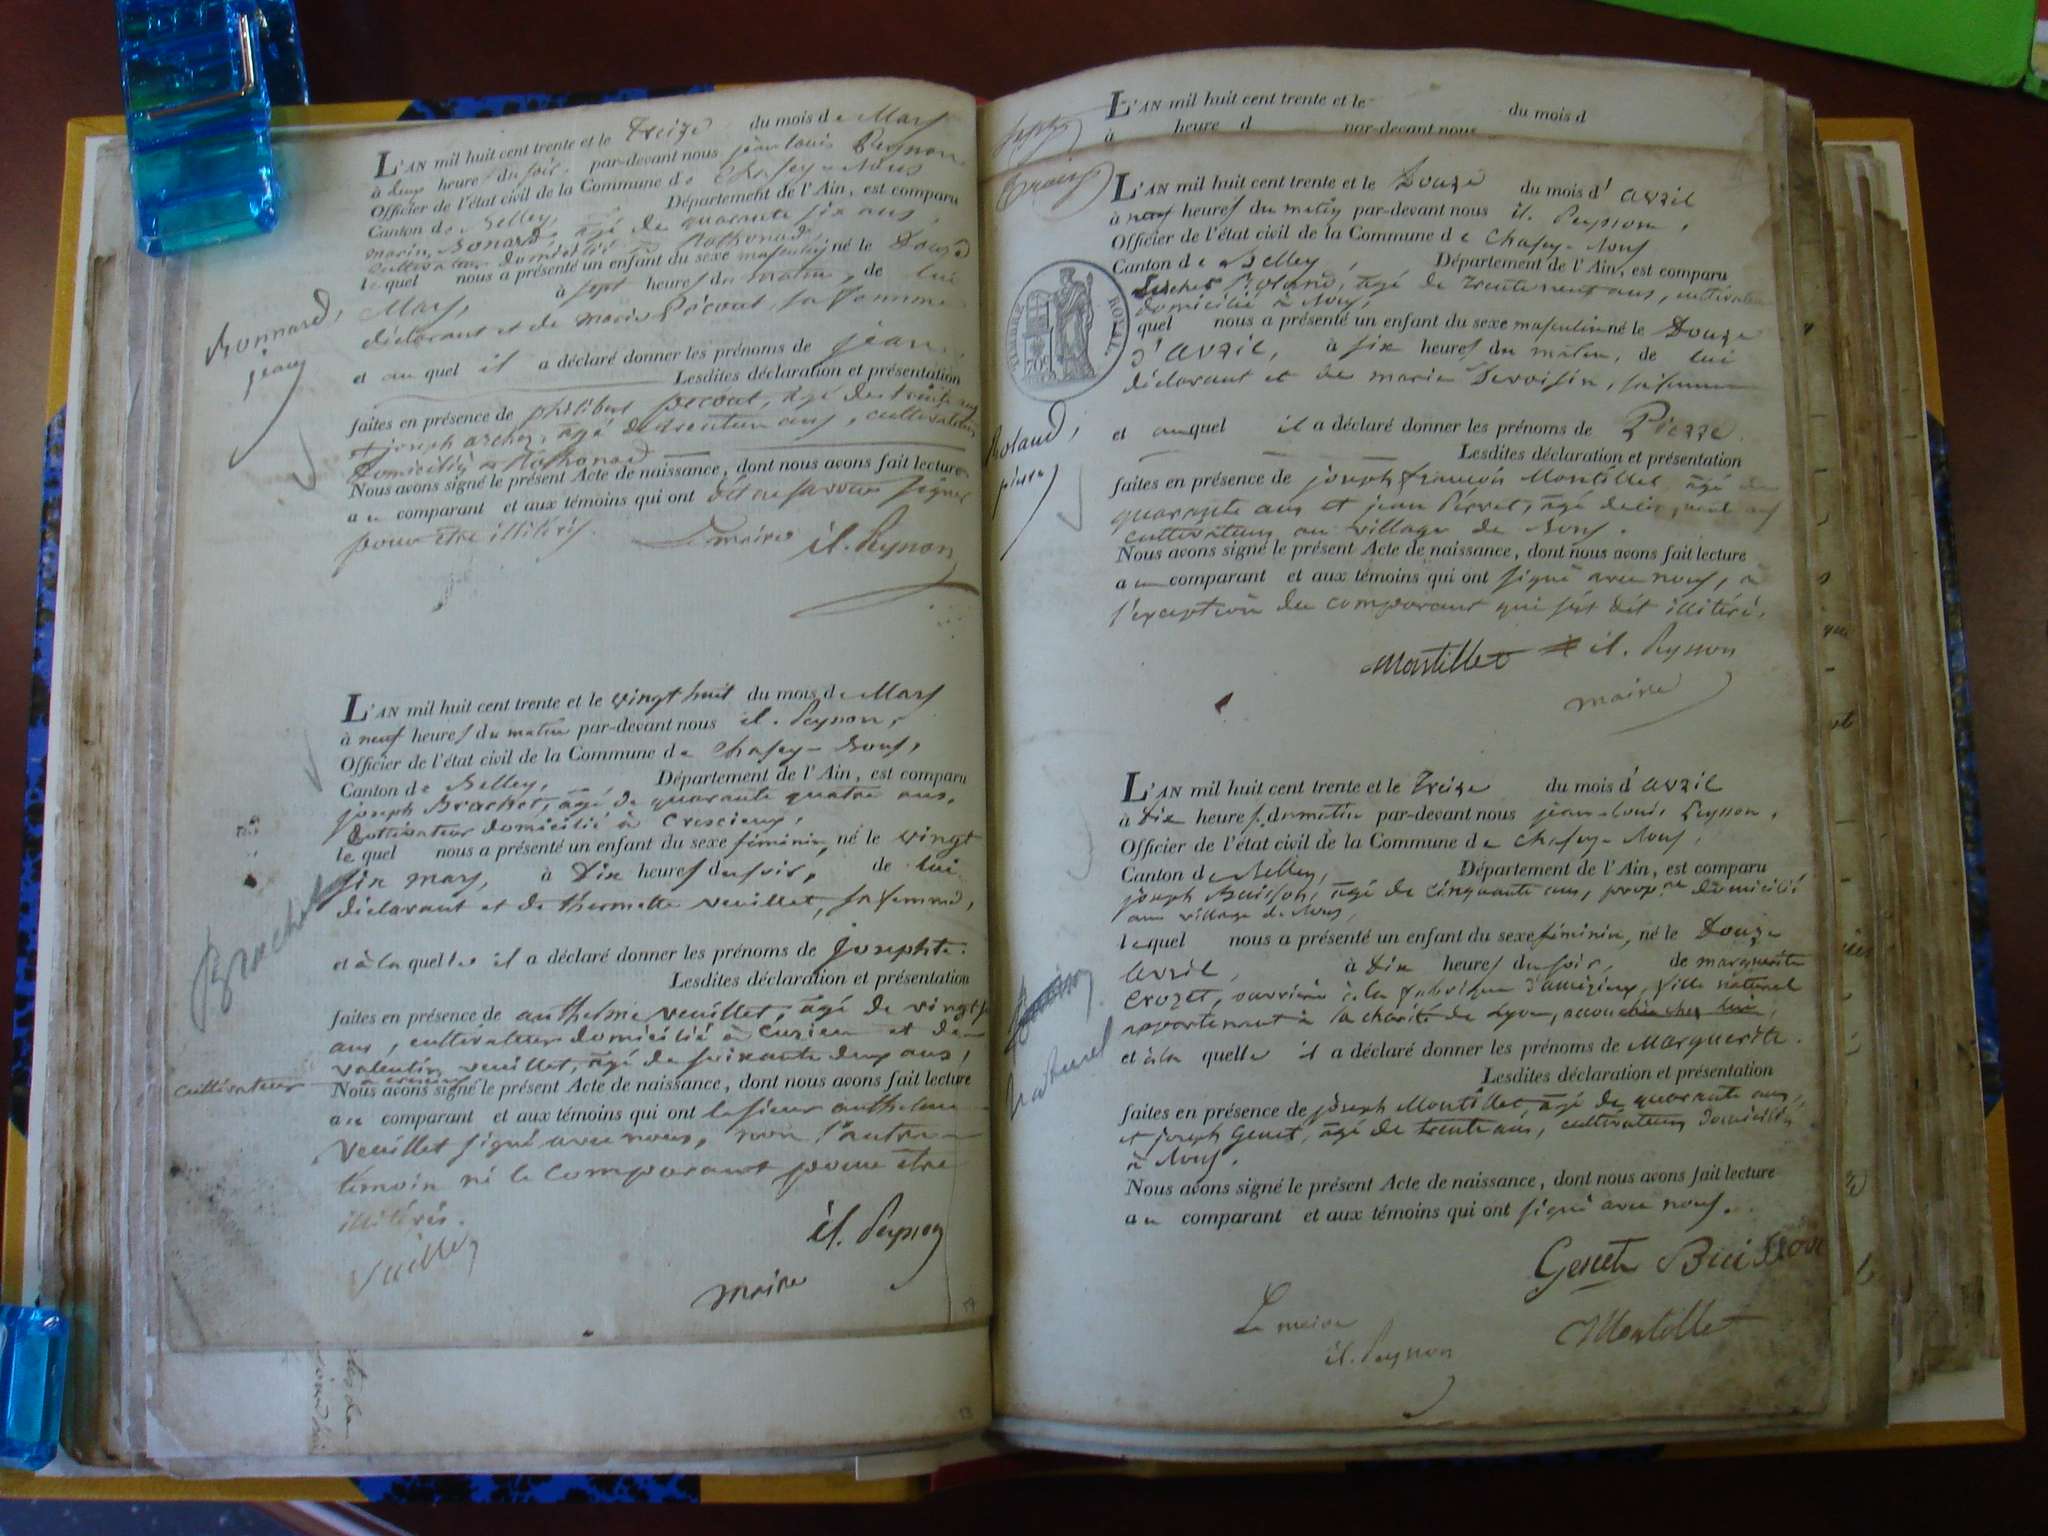 L'AN mil huit cent trente et le Treize du mois de Mars
à deux heures du soir, par-devant nous jean louis Peysson
Officier de l'état civil de la Commune de Chasey-Nous
Canton de Belley, Département de l'Ain, est comparu
marin Bonard, âgé de quarante six ans,
cultivateur domicilié à Rothonod,
lequel nous a présenté un enfant du sexe masculin, né le Douze
Mars, à sept heures du matin, de lui
déclarant et de marie Pécout, sa femme
et auquel il a déclaré donner les prénoms de jean.
Lesdites déclaration et présentation
faites en présence de philibert pecout, âgé de trente
et joseph archer, âgé de trente un ans, cultivateurs
Domiciliés à Rothonod
Nous avons signé le présent Acte de naissance, dont nous avons fait lecture
au comparant et aux témoins qui ont dit ne savoir signer
pour être illitérés. Le maire il. Peysson
Bonnard,
jean
L'AN mil huit cent trente et le vingt huit du mois de Mars
à neuf heures du matin par-devant nous il. Peysson,
Officier de l'état civil de la Commune de Chasey-Nous,
Canton de Belley, Département de l'Ain, est comparu
joseph Brachet, âgé de quarante quatre ans,
Cultivateur domicilié à Crescieux,
lequel nous a présenté un enfant du sexe féminin, né le vingt
six mars, à Dix heures du soir, de lui
déclarant et de thermette veuillet, sa femme,
et à laquelle il a déclaré donner les prénoms de josephte.
Lesdites déclaration et présentation
faites en présence de anthelme veuillet, âgé de vingt
ans, cultivateur domicilié à Cuzieu et de
valentin veuillet, âgé de soixante deux ans,
cultivateur
Nous avons signé le présent Acte de naissance, dont nous avons fait lecture
au comparant et aux témoins qui ont le sieur anthelme
Veuillet signé avec nous, non l'autre
témoin ni le comparant pour être
illitérés.
Vuillet
il. Peysson
maire
Brachet
L'AN mil huit cent trente et le du mois d
à heure d par-devant nous
L'AN mil huit cent trente et le Douze du mois d'avril
à neuf heures du matin par-devant nous il. Peysson,
Officier de l'état civil de la Commune de Chasey-Nous
Canton de Belley, Département de l'Ain, est comparu
Roland, âgé de trente neuf ans, cultivateur
domicilié à Nous,
quel nous a présenté un enfant du sexe masculin né le Douze
d'avril, à six heures du matin, de lui
déclarant et de marie Devoisin, sa femme
et auquel il a déclaré donner les prénoms de Pierre.
Lesdites déclaration et présentation
faites en présence de joseph françois Montillet âgé de
quarante ans et jean Perret, âgé de
cultivateurs au village de Nous.
Nous avons signé le présent Acte de naissance, dont nous avons fait lecture
au comparant et aux témoins qui ont signé avec nous, à
l'exception du comparant qui s'est dit illitéré.
Montillet il. Peysson
maire
TIMBRE ROYAL
Roland,
pierre
L'AN mil huit cent trente et le Treize du mois d'avril
à Dix heures du matin par-devant nous jean-louis Peysson,
Officier de l'état civil de la Commune de Chasey-Nous,
Canton de Belley, Département de l'Ain, est comparu
joseph Buisson, âgé de cinquante ans, prop.re domicilié
au village de Nous,
lequel nous a présenté un enfant du sexe féminin, né le Douze
avril, à Dix heures du soir, de marguerite
Crozet, ouvrière à la fabrique d'amézieux, fille naturel
appartenant à la charité de Lyon, accouchée chez lui,
et à laquelle il a déclaré donner les prénoms de Marguerite.
Lesdites déclaration et présentation
faites en présence de joseph Montillet, âgé de quarante ans,
et joseph Genet, âgé de trente ans, cultivateurs domiciliés
à Nous.
Nous avons signé le présent Acte de naissance, dont nous avons fait lecture
au comparant et aux témoins qui ont signé avec nous.
Genet Buisson
Le maire Montillet
il. Peysson
naturel